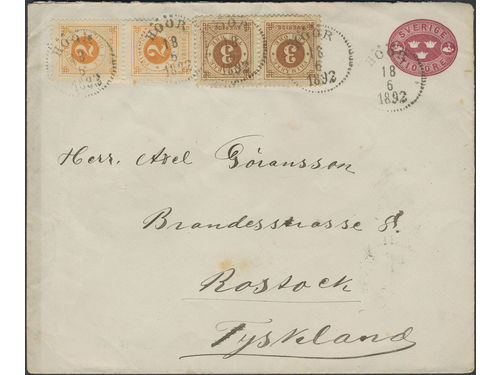 2 2 3 3
HÖÖR 18 6 1892
HÖÖR 18 6 1892
SVERIGE
TIO ÖRE
HÖÖR
18
6
1892
Herr. Axel Göransson
Brandesstrasse 8.
Rostock
Tyskland